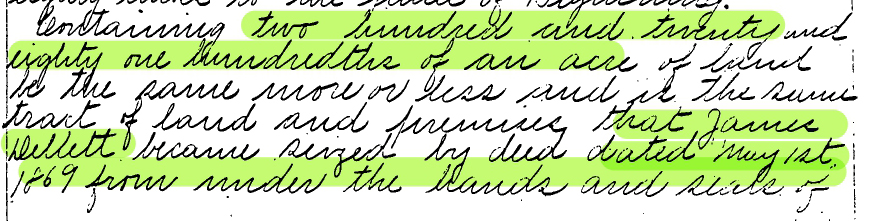 place of beginning.
Containing two hundred and twenty and
eighty one hundredths of an acre of land
be the same more or less and is the same
tract of land and premises that James
Dellett became seized by deed dated May 1st.
1869 from under the hands and seals of